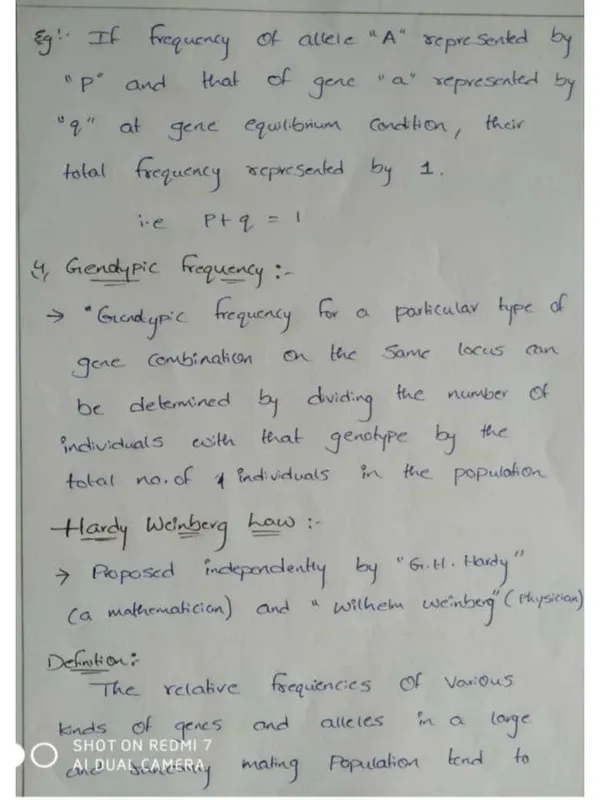 Eg:- If frequency of allele "A" represented by
"P" and that of gene "a" represented by
"q" at gene equilibrium condition, their
total frequency represented by 1.
i.e P+q = 1
4, Genotypic frequency :-
→ "Genotypic frequency for a particular type of
gene combination on the same locus can
be determined by dividing the number of
individuals with that genotype by the
total no. of individuals in the population
Hardy Weinberg Law :-
→ Proposed independently by "G.H. Hardy"
(a mathematician) and "Wilhelm Weinberg" (Physician)
Definition :-
The relative frequencies of various
kinds of genes and alleles in a large
and mating Population tend to
SHOT ON REDMI 7
AI DUAL CAMERA